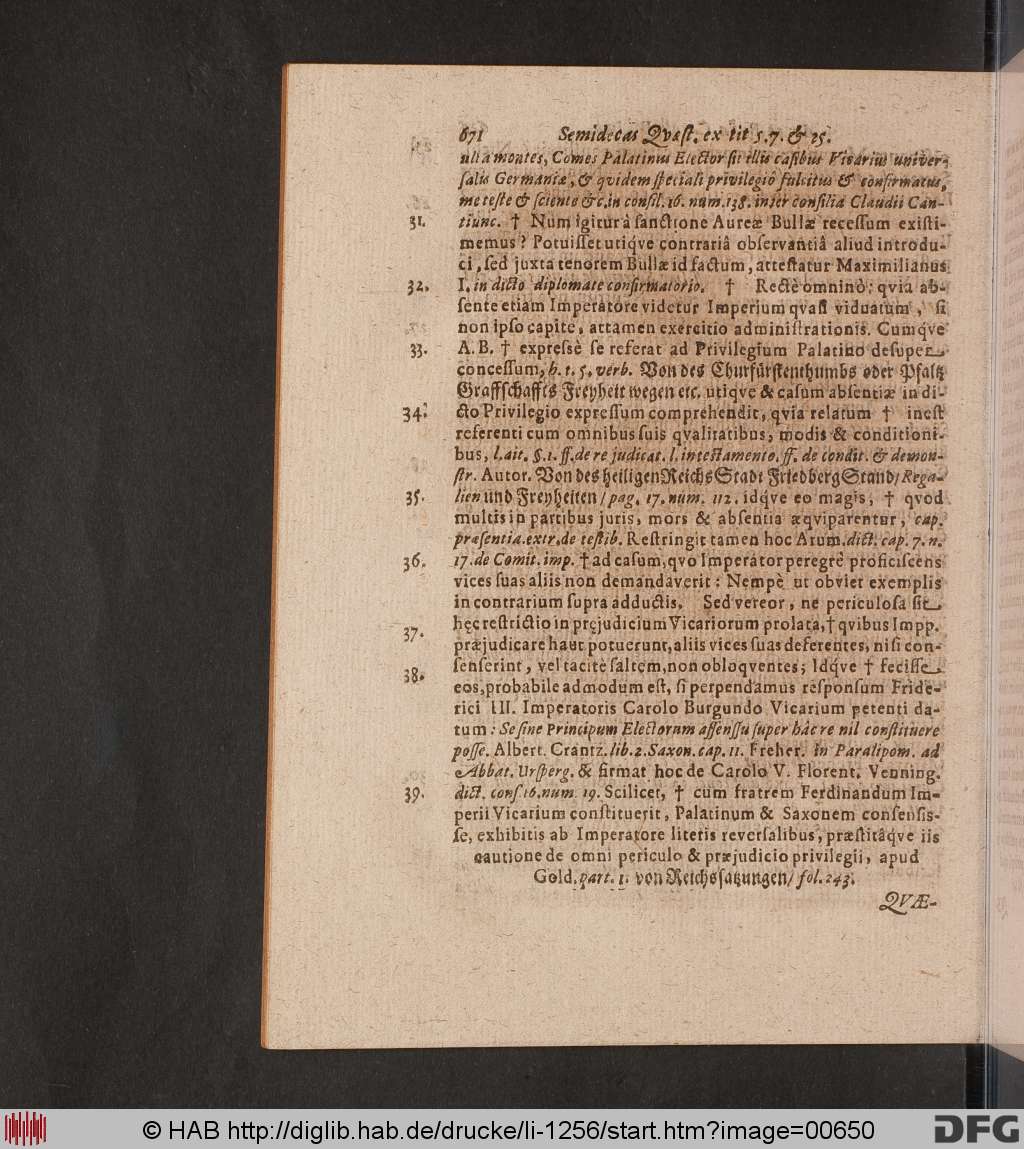 671 Semidecas Qvæst. ex tit 5. 7. & 25.
ultamontes, Comes Palatinus Elector sit illis casibus Vicarius univer-
salis Germaniæ, & qvidem speciali privilegiô fulcitus & confirmatus,
me teste & sciente &c. in consil. 16. num. 138. inter consilia Claudii Can-
31. tiunc. † Num igitur à sanctione Aureæ Bullæ recessum existi-
memus? Potuisset utiqve contrariâ observantiâ aliud introdu-
ci, sed juxta tenorem Bullæ id factum, attestatur Maximilianus
32. I. in dicto diplomate confirmatorio. † Rectè omninò: qvia ab-
sente etiam Imperatore videtur Imperium qvasi viduatum, si
non ipso capite, attamen exercitio administrationis. Cumqve
33. A. B. † expressè se referat ad Privilegium Palatino desuper
concessum, h. t. 5. verb. Von des Churfürstenthumbs oder Pfaltz
Graffschaffts Freyheit wegen etc. utiqve & casum absentiæ in di-
34. cto Privilegio expressum comprehendit, qvia relatum † inest
referenti cum omnibus suis qvalitatibus, modis & conditioni-
bus, l. ait. §. 1. ff. de re judicat. l. in testamento. ff. de condit. & demon-
str. Autor. Von des heiligen Reichs Stadt Friedberg Stand/ Rega-
35. lien und Freyheiten/ pag. 17. num. 112. idqve eo magis, † qvod
multis in partibus juris, mors & absentia æqviparentur, cap.
præsentia. extr. de testib. Restringit tamen hoc Arum. dict. cap. 7. n.
36. 17. de Comit. imp. † ad casum, qvo Imperator peregrè proficiscens
vices suas aliis non demandaverit: Nempè ut obviet exemplis
in contrarium supra adductis. Sed vereor, ne periculosa sit
37. hęc restrictio in pręjudicium Vicariorum prolata, † qvibus Impp.
præjudicare haut potuerunt, aliis vices suas deferentes, nisi con-
38. senserint, vel tacitè saltem, non obloqventes; Idq́ve † fecisse
eos, probabile admodum est, si perpendamus responsum Fride-
rici III. Imperatoris Carolo Burgundo Vicarium petenti da-
tum: Se sine Principum Electorum assensu super hâc re nil constituere
posse. Albert. Crantz. lib. 2. Saxon. cap. 11. Freher. in Paralipom. ad
Abbat. Ursperg. & firmat hoc de Carolo V. Florent. Venning.
39. dict. cons. 16. num. 19. Scilicet, † cum fratrem Ferdinandum Im-
perii Vicarium constituerit, Palatinum & Saxonem consensis-
se, exhibitis ab Imperatore literis reversalibus, præstitâqve iis
cautione de omni periculo & præjudicio privilegii, apud
Gold. part. 1. von Reichssatzungen/ fol. 243.
QVÆ-
© HAB http://diglib.hab.de/drucke/li-1256/start.htm?image=00650
DFG